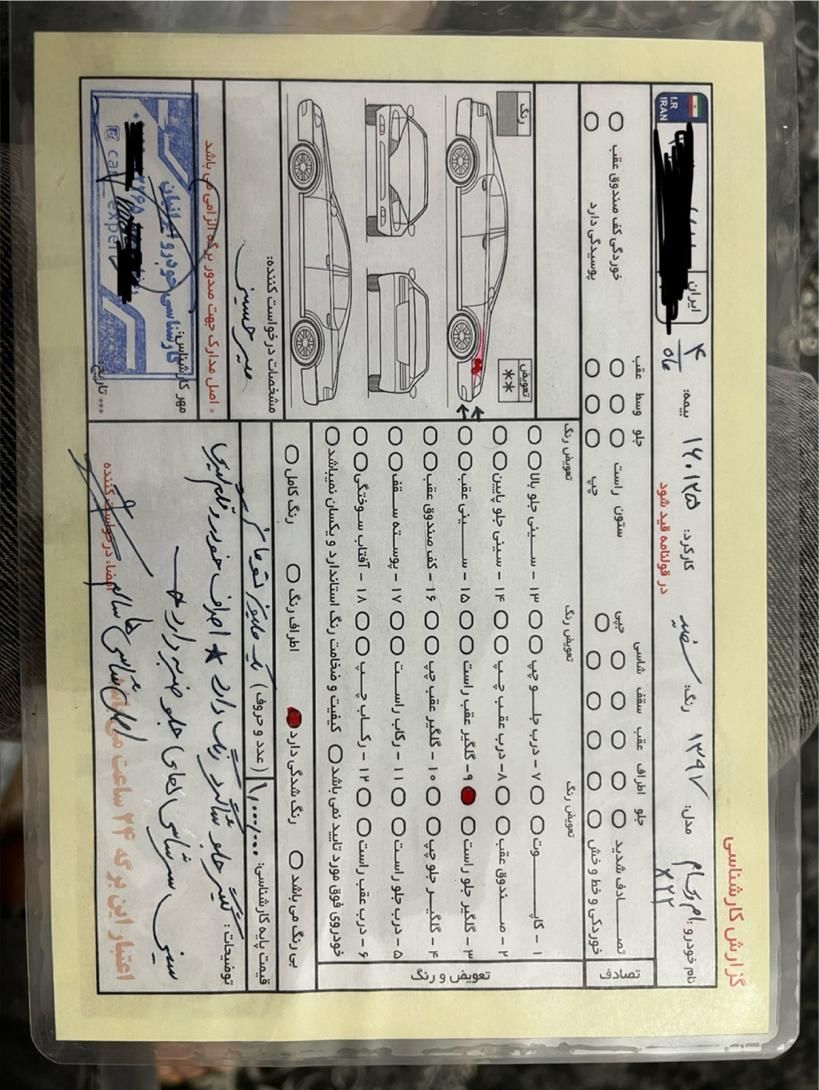 گزارش کارشناسی
نام خودرو: ام وی ام X22
مدل: ۱۳۹۷
رنگ: سفید
کارکرد: ۱۶۰۱۲۵
در قولنامه قید شود
بیمه: ۴/۵
ایران
I.R
IRAN
تصادف
جلو اطراف عقب سقف شاسی
تصادف شدید
خوردگی و خط و خش
چپی
جلو وسط عقب
ستون راست
چپ
خوردگی کف صندوق عقب
پوسیدگی دارد
تعویض و رنگ
تعویض رنگ
تعویض رنگ
تعویض رنگ
۱ - کاپوت
۷ - درب جلو چپ
۱۳ - سینی جلو بالا
۲ - صندوق عقب
۸ - درب عقب چپ
۱۴ - سینی جلو پایین
۳ - گلگیر جلو راست
۹ - گلگیر عقب راست
۱۵ - سینی عقب
۴ - گلگیر جلو چپ
۱۰ - گلگیر عقب چپ
۱۶ - کف صندوق عقب
۵ - درب جلو راست
۱۱ - رکاب راست
۱۷ - پوسته سقف
۶ - درب عقب راست
۱۲ - رکاب چپ
۱۸ - آفتاب سوختگی
خودروی فوق مورد تایید نمی باشد
کیفیت و ضخامت رنگ استاندارد و یکسان نمیباشد
بی رنگ می باشد
رنگ شدگی دارد
اطراف رنگ
رنگ کامل
رنگ
تعویض
**
قیمت پایه کارشناسی: ۱,۰۰۰/۰۰۰ (عدد و حروف) یک میلیون تومان
توضیحات: گلگیر جلو شاگرد رنگ دارد * اطراف خودرو قلم گیری
سینی سرشاسی های جلو ضربه دارد
اصل شاسی ها سالم
اعتبار این برگه ۲۴ ساعت می باشد
امضاء درخواست کننده
مشخصات درخواست کننده:
میرحسینی
* اصل مدارک جهت صدور برگه الزامی می باشد
مهر کارشناس:
کارشناسی خودرو ایرانیان
*** تاریخ